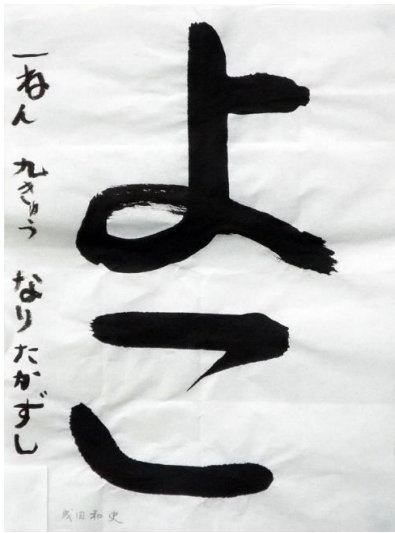 よこ
一ねん 九きゅう なりたかずし
成田和史